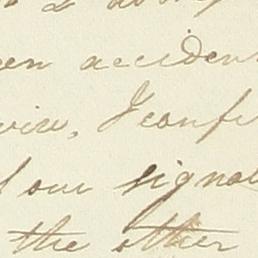 en acciden
wire, I conf
our signal
the other